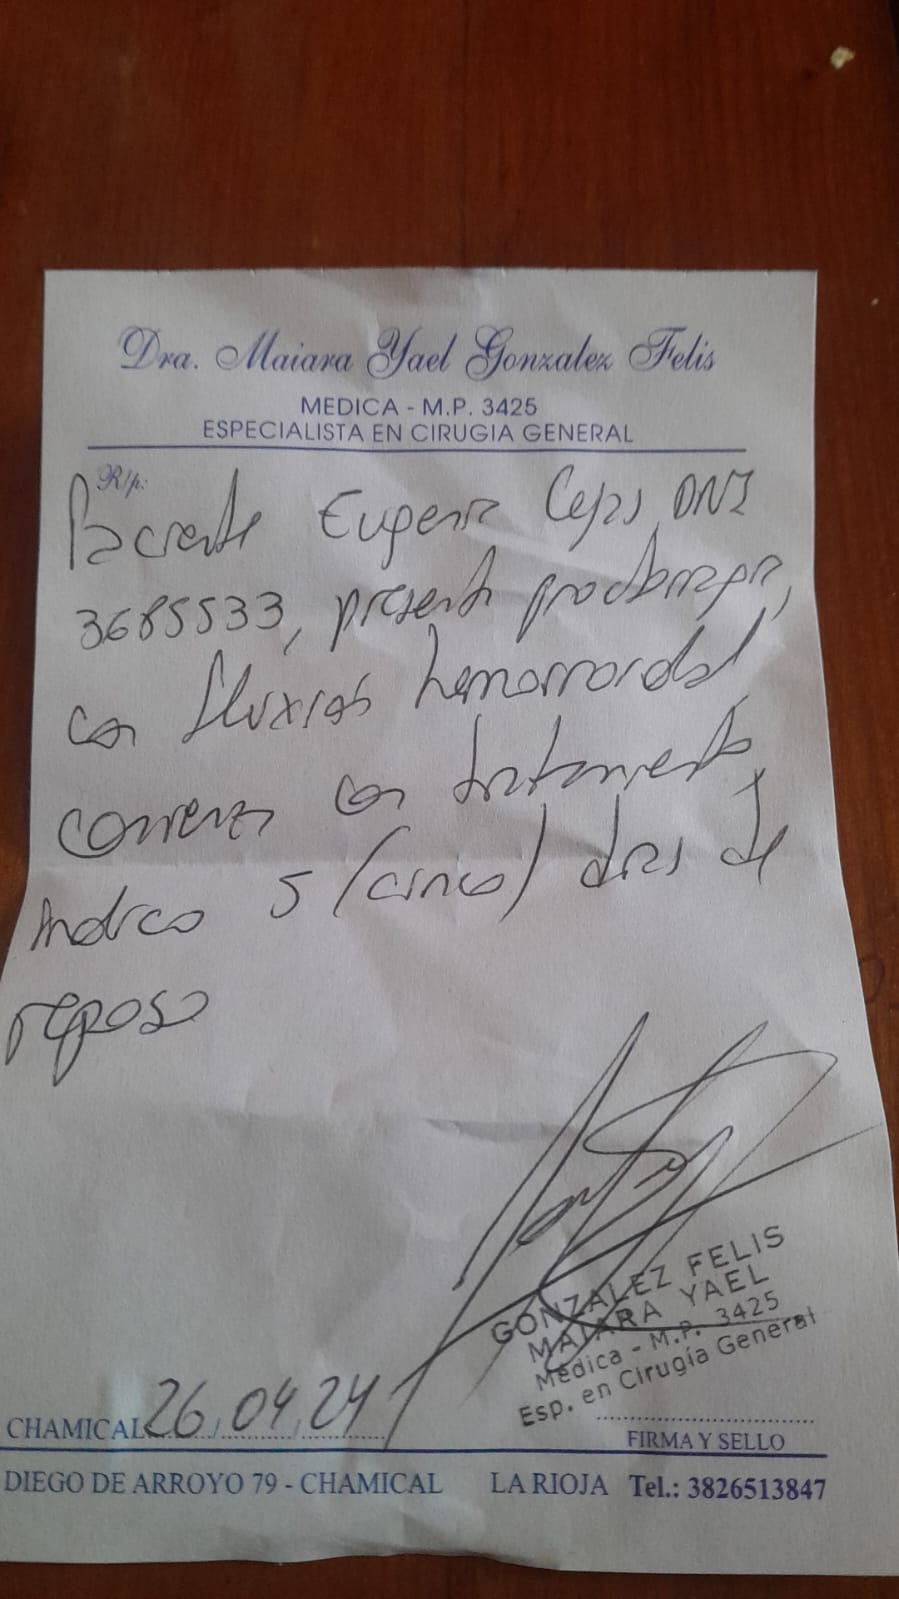 Dra. Maiara Yael Gonzalez Felis
MEDICA - M.P. 3425
ESPECIALISTA EN CIRUGIA GENERAL
R/p:
Paciente Eugenia DNI
3685533, presenta proctorragia,
con fluxión hemorroidal,
comienza con tratamiento,
Indico 5 (cinco) días de
reposo
GONZALEZ FELIS
MAIARA YAEL
Médica - M.P. 3425
Esp. en Cirugía General
CHAMICAL 26/04/24
FIRMA Y SELLO
DIEGO DE ARROYO 79 - CHAMICAL LA RIOJA Tel.: 3826513847